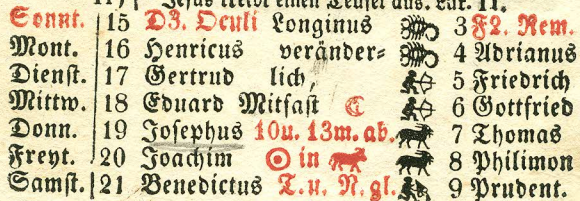 Jesus treibt einen Teufel aus. Luk. 11.
Sonnt. 15 D3. Oculi Longinus 3 F2. Rem.
Mont. 16 Henricus veränder= 4 Adrianus
Dienst. 17 Gertrud lich, 5 Friedrich
Mittw. 18 Eduard Mitfast 6 Gottfried
Donn. 19 Josephus 10u. 13m. ab. 7 Thomas
Freyt. 20 Joachim in 8 Philimon
Samst. 21 Benedictus T. u. N. gl. 9 Prudent.